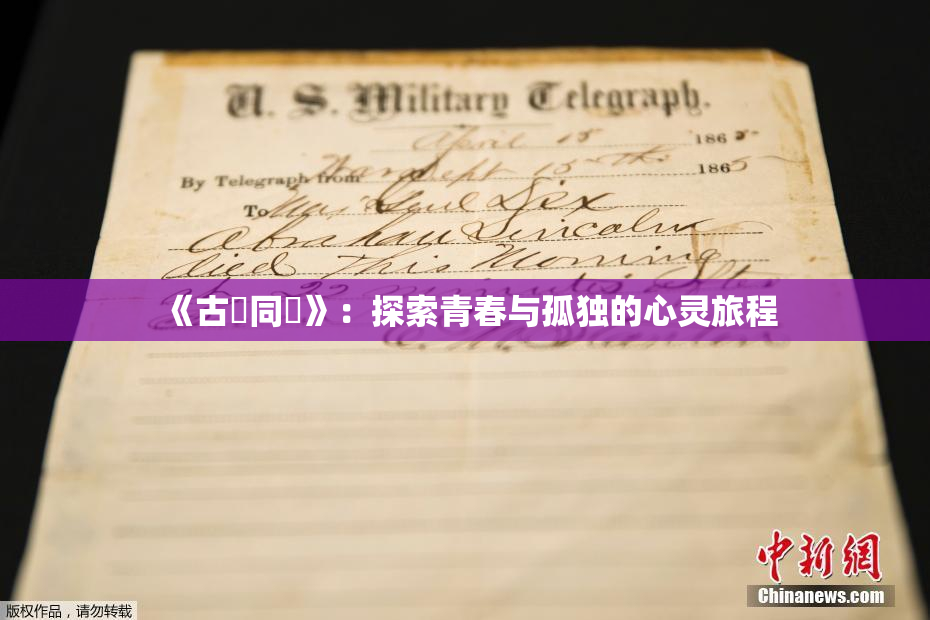 U. S. Military Telegraph.
April 15 1865
By Telegraph from War Dept 15th 1865
To Maj Genl Dix
Abraham Lincoln
died This Morning
at 22 minutes after
《古同》：探索青春与孤独的心灵旅程
E. M. Stanton
中新网
Chinanews.com
版权作品，请勿转载